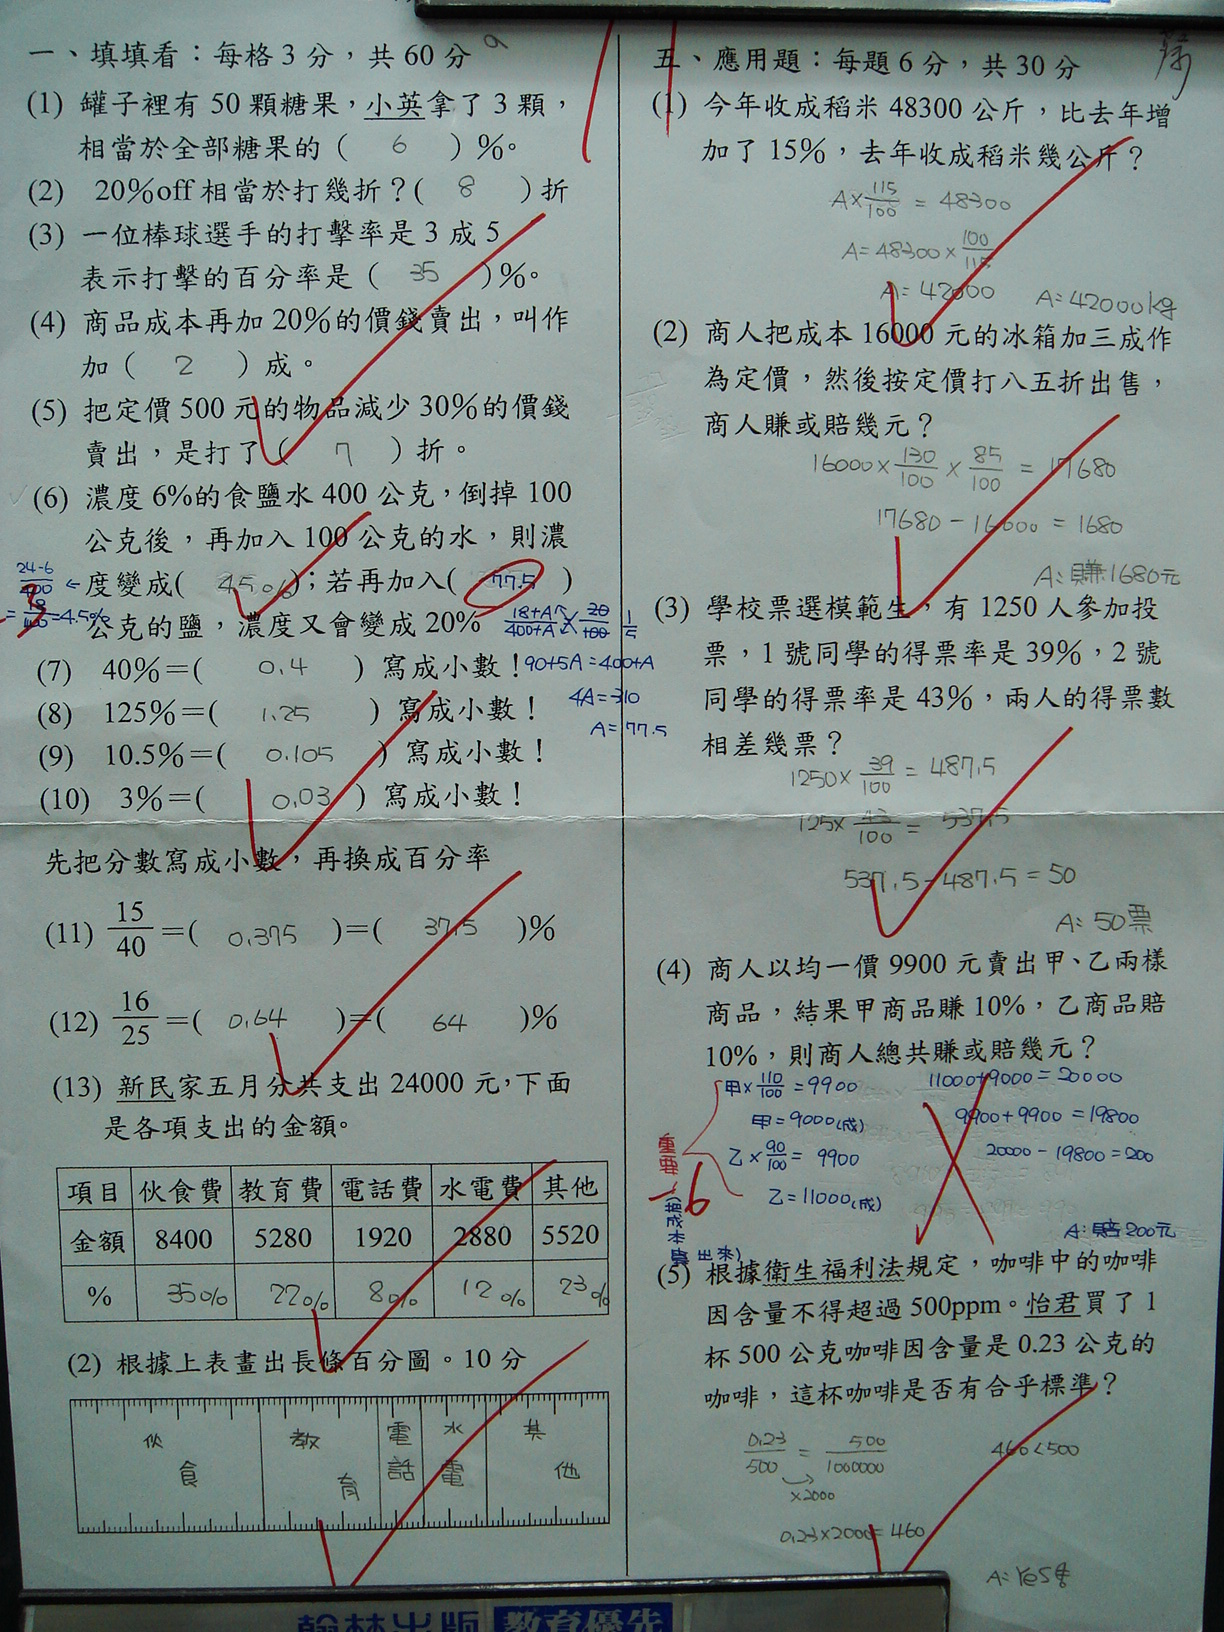 一、填填看：每格3分，共60分
(1) 罐子裡有50顆糖果，小英拿了3顆，
相當於全部糖果的（ 6 ）%。
(2) 20%off相當於打幾折？( 8 )折
(3) 一位棒球選手的打擊率是3成5
表示打擊的百分率是（ 35 ）%。
(4) 商品成本再加20%的價錢賣出，叫作
加（ 2 ）成。
(5) 把定價500元的物品減少30%的價錢
賣出，是打了（ 7 ）折。
(6) 濃度6%的食鹽水400公克，倒掉100
公克後，再加入100公克的水，則濃
度變成( 4.5% )；若再加入( 77.5 )
公克的鹽，濃度又會變成20%
24-6
=4.5%
18+A/400+A 20/100 1/5
90+5A=400+A
4A=310
A=77.5
(7) 40%=( 0.4 ) 寫成小數！
(8) 125%=( 1.25 ) 寫成小數！
(9) 10.5%=( 0.105 ) 寫成小數！
(10) 3%=( 0.03 ) 寫成小數！
先把分數寫成小數，再換成百分率
(11) 15/40=( 0.375 )=( 37.5 )%
(12) 16/25=( 0.64 )=( 64 )%
(13) 新民家五月分共支出24000元，下面
是各項支出的金額。
項目 伙食費 教育費 電話費 水電費 其他
金額 8400 5280 1920 2880 5520
% 35% 22% 8% 12% 23%
(2) 根據上表畫出長條百分圖。10分
伙食 教育 電話 水電 其他
五、應用題：每題6分，共30分
(1) 今年收成稻米48300公斤，比去年增
加了15%，去年收成稻米幾公斤？
A×115/100=48300
A=48300×100/115
A=42000 A:42000kg
(2) 商人把成本16000元的冰箱加三成作
為定價，然後按定價打八五折出售，
商人賺或賠幾元？
16000×130/100×85/100=17680
17680-16000=1680
A:賺1680元
(3) 學校票選模範生，有1250人參加投
票，1號同學的得票率是39%，2號
同學的得票率是43%，兩人的得票數
相差幾票？
1250×39/100=487.5
125×43/100=537.5
537.5-487.5=50
A:50票
(4) 商人以均一價9900元賣出甲、乙兩樣
商品，結果甲商品賺10%，乙商品賠
10%，則商人總共賺或賠幾元？
甲×110/100=9900 11000+9000=20000
甲=9000(成) 9900+9900=19800
乙×90/100=9900 20000-19800=200
乙=11000(成)
A:賠200元
重要
-6
(把成本算出來)
(5) 根據衛生福利法規定，咖啡中的咖啡
因含量不得超過500ppm。怡君買了1
杯500公克咖啡因含量是0.23公克的
咖啡，這杯咖啡是否有合乎標準？
0.23/500=500/1000000 460<500
×2000
0.23×2000=460
A:Yes
翰林出版 教育優先